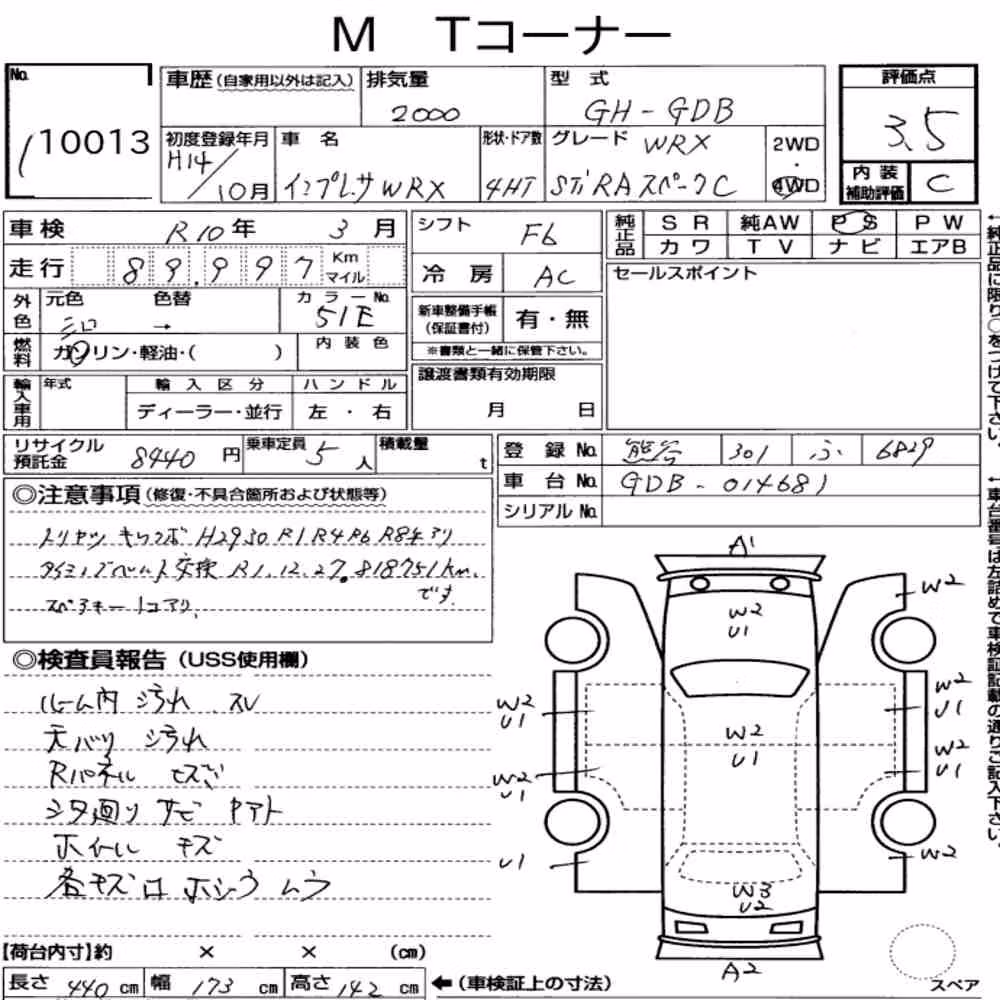 M Tコーナー
No.
10013
車歴 (自家用以外は記入) 排気量 2000 型式 GH-GDB
初度登録年月 H14/10月 車名 インプレッサWRX 形状・ドア数 4HT グレード WRX STi RA スペークC 2WD・4WD
評価点 3.5
内装補助評価 C
車検 R10年 3月
走行 89,997 Km マイル
外色 元色 シロ 色替 → カラーNo. 51E
燃料 ガソリン・軽油・( ) 内装色
輸入車用 年式 輸入区分 ディーラー・並行 ハンドル 左・右
シフト F6
冷房 AC
新車整備手帳(保証書付) 有・無
※書類と一緒に保管下さい。
譲渡書類有効期限
月 日
純正品 SR 純AW PS PW
カワ TV ナビ エアB
セールスポイント
←純正品に限り○をつけて下さい。
リサイクル預託金 8440円 乗車定員 5人 積載量 t
登録No. 熊谷 301 ふ 6829
車台No. GDB-014681
シリアルNo.
←車台番号は左詰めで車検証記載の通りご記入下さい。
◎注意事項(修復・不具合箇所および状態等)
トリセツ キロクボ H29 30 R1 R4 R6 R8 アリ
タイミングベルト交換 R1.12.27. 81875km.
です.
スペアキー 1コアリ.
◎検査員報告(USS使用欄)
ルーム内 汚れ スレ
天バリ 汚れ
Rパネル
シタ廻り サビ
ホイール キズ
各キズ ムラ
A1
W2
U1
W2
W2
U1
W2
U1
W2
U1
W2
U1
W2
U1
U1
W2
W3
U2
A2
スペア
【荷台内寸】約 × × (cm)
長さ 440 cm 幅 173 cm 高さ 142 cm ←(車検証上の寸法)